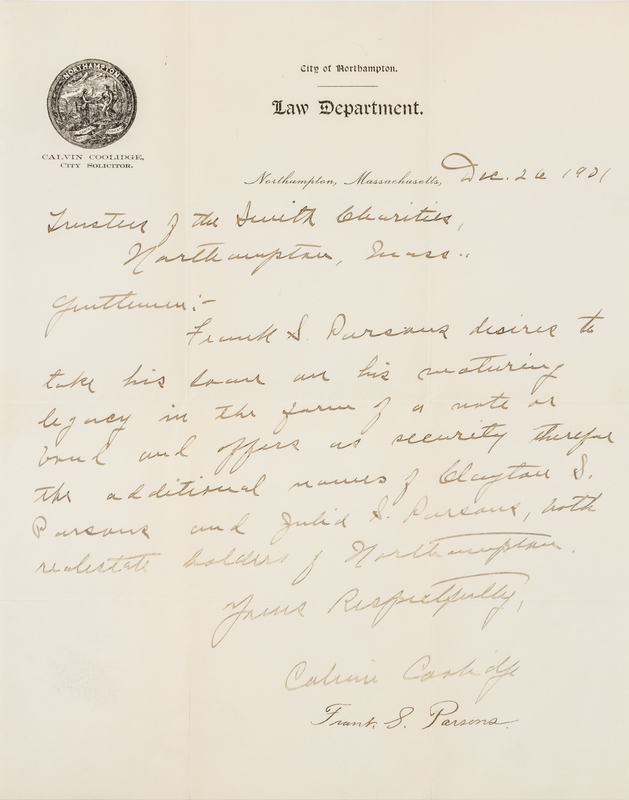 NORTHAMPTON
CALVIN COOLIDGE,
CITY SOLICITOR.
City of Northampton.
Law Department.
Northampton, Massachusetts, Dec. 26 1901
Trustees of the Smith Charities,
Northampton, Mass.:
Gentlemen:-
Frank S. Parsons desires to
take his loan on his maturing
legacy in the form of a note or
bond and offers as security therefor
the additional names of Clayton S.
Parsons and Julia S. Parsons, both
realestate holders of Northampton.
Yours Respectfully,
Calvin Coolidge
Frank S. Parsons.